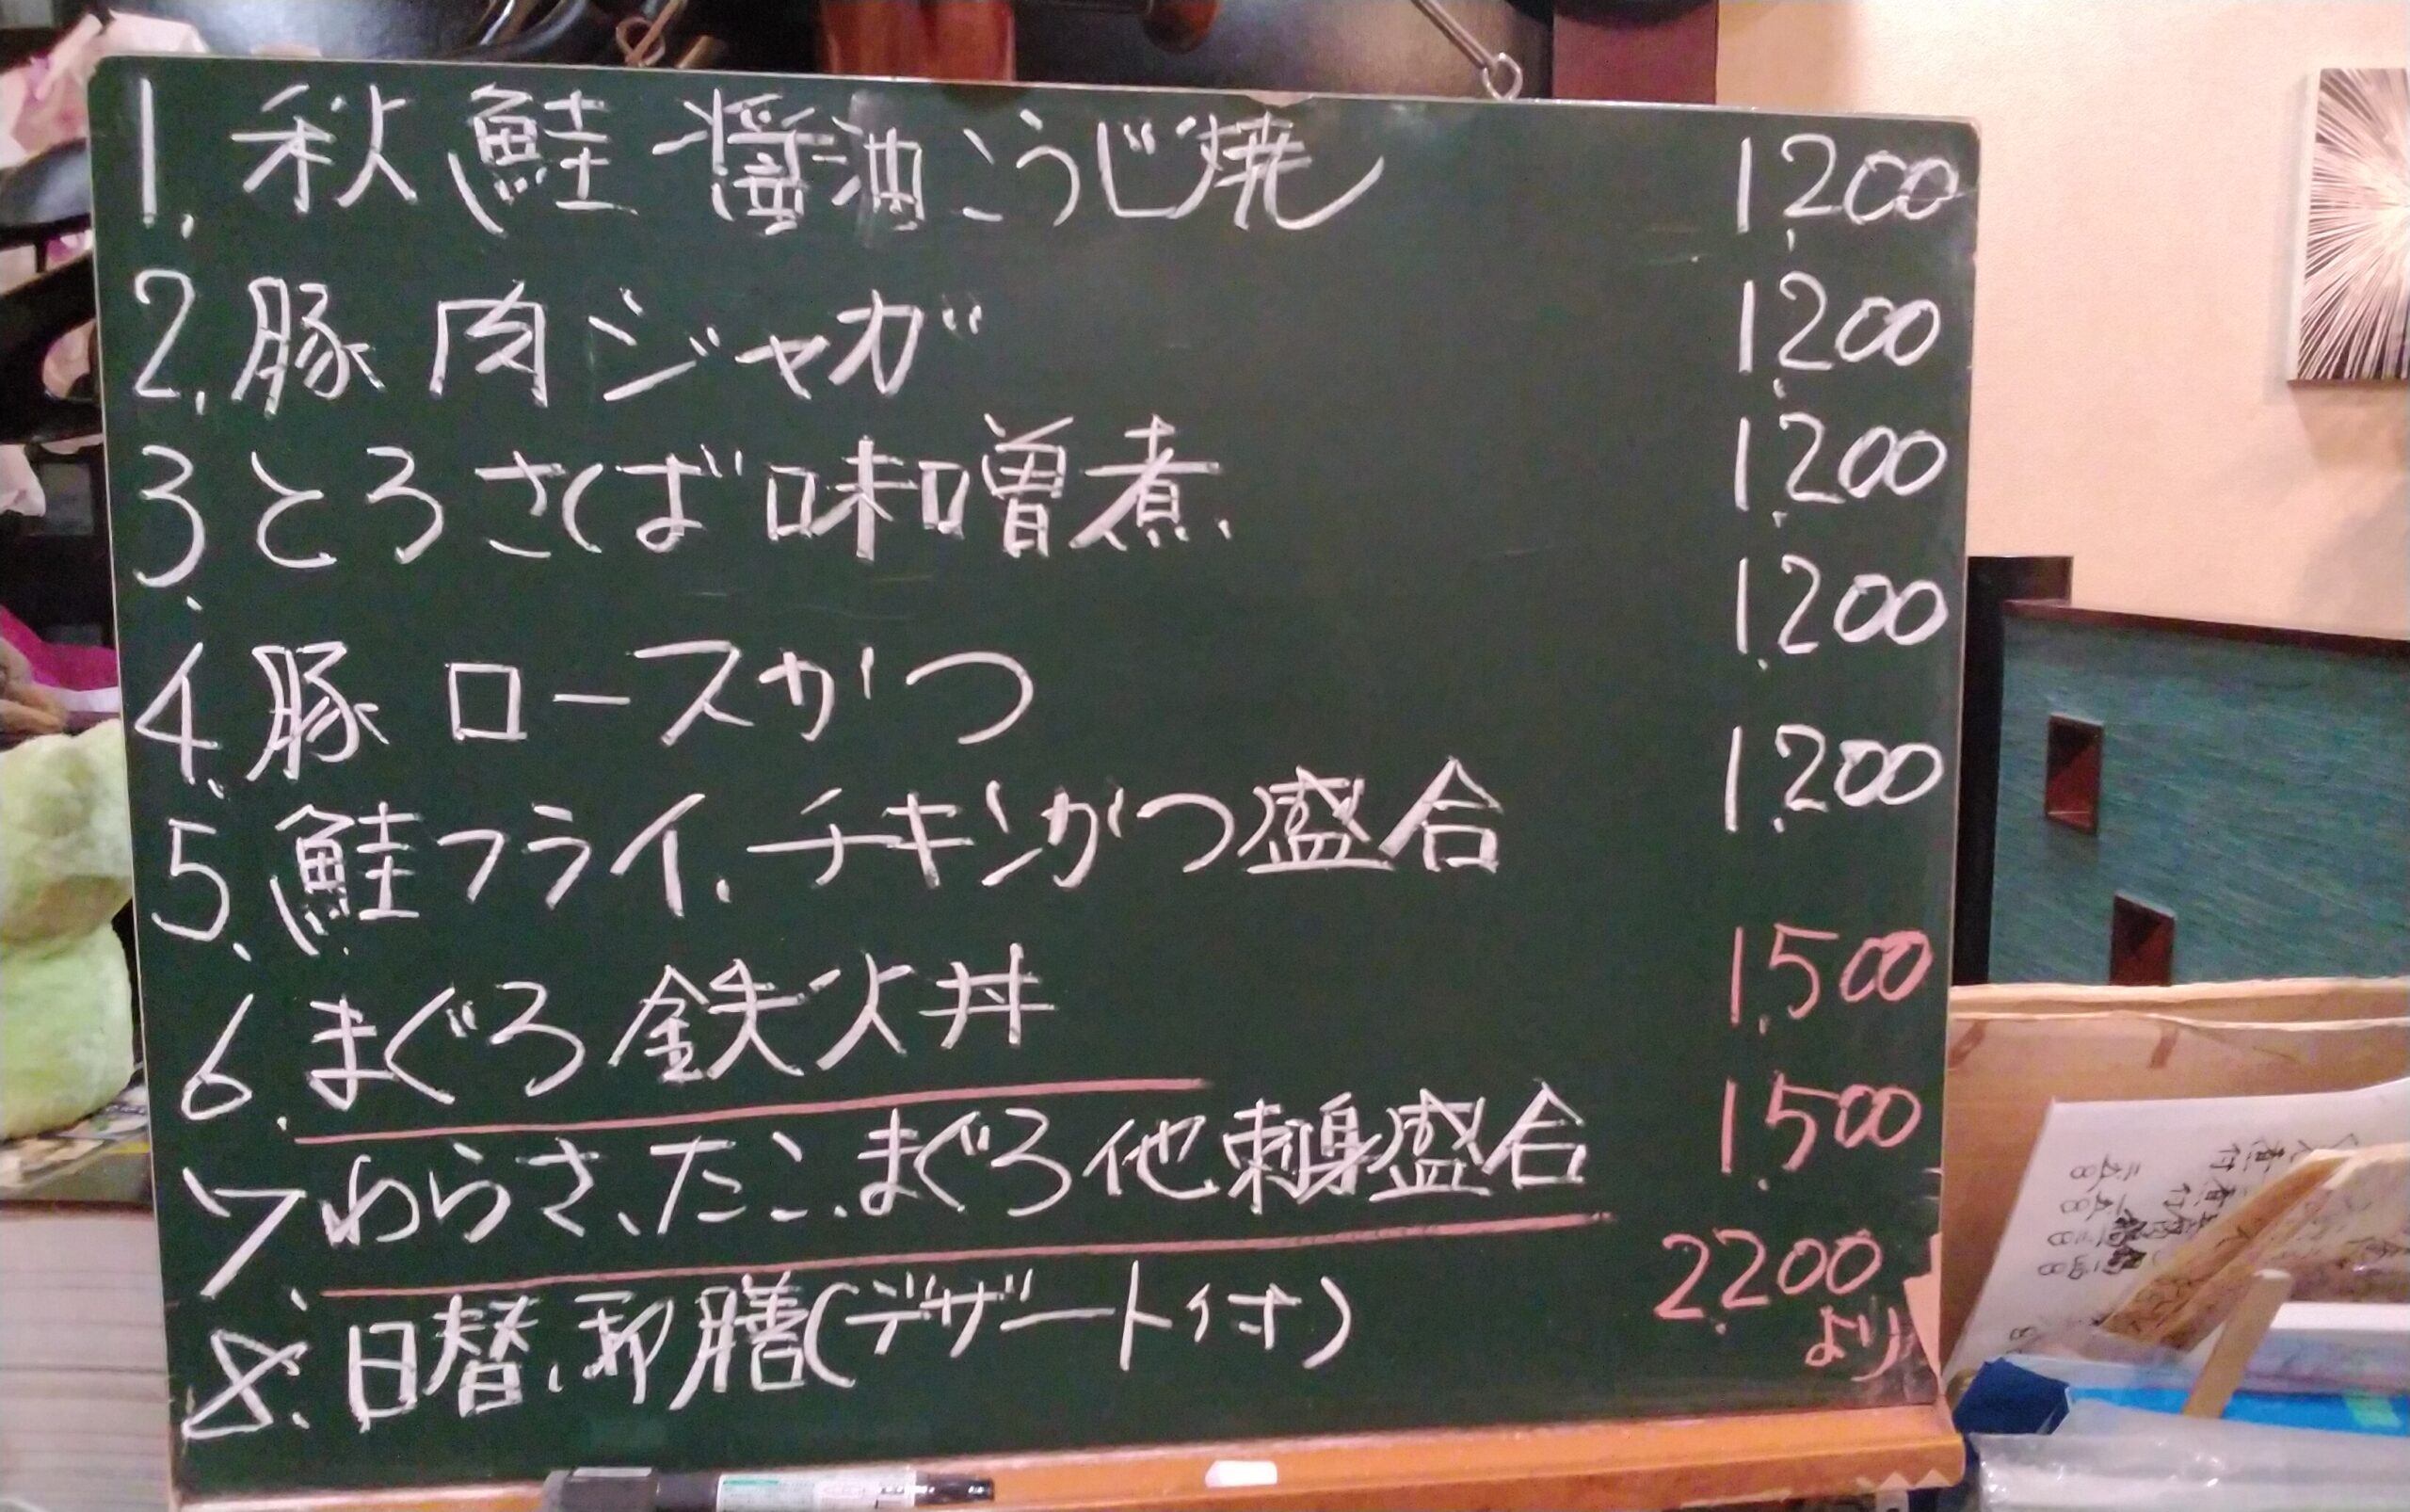 1. 秋鮭醤油こうじ焼 1,200
2. 豚肉ジャガ 1,200
3. とろさば味噌煮 1,200
4. 豚ロースかつ 1,200
5. 鮭フライ、チキンかつ盛合 1,200
6. まぐろ鉄火丼 1,500
7. わらさ、たこ、まぐろ他刺身盛合 1,500
8. 日替、御膳(デザート付) 2,200
より